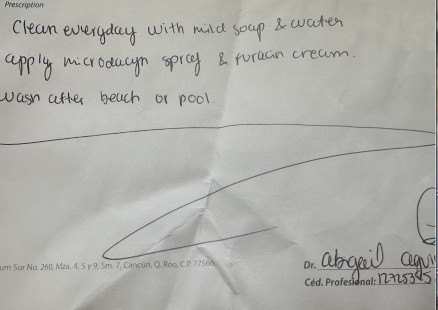 Prescription
Clean everyday with mild soap & water
apply microdacyn spray & furacin cream.
Wash after beach or pool
um Sur No. 260, Mza. 4, 5 y 9, Sm. 7, Cancún, Q. Roo, C.P. 77560.
Dr. abigail
Céd. Profesional: